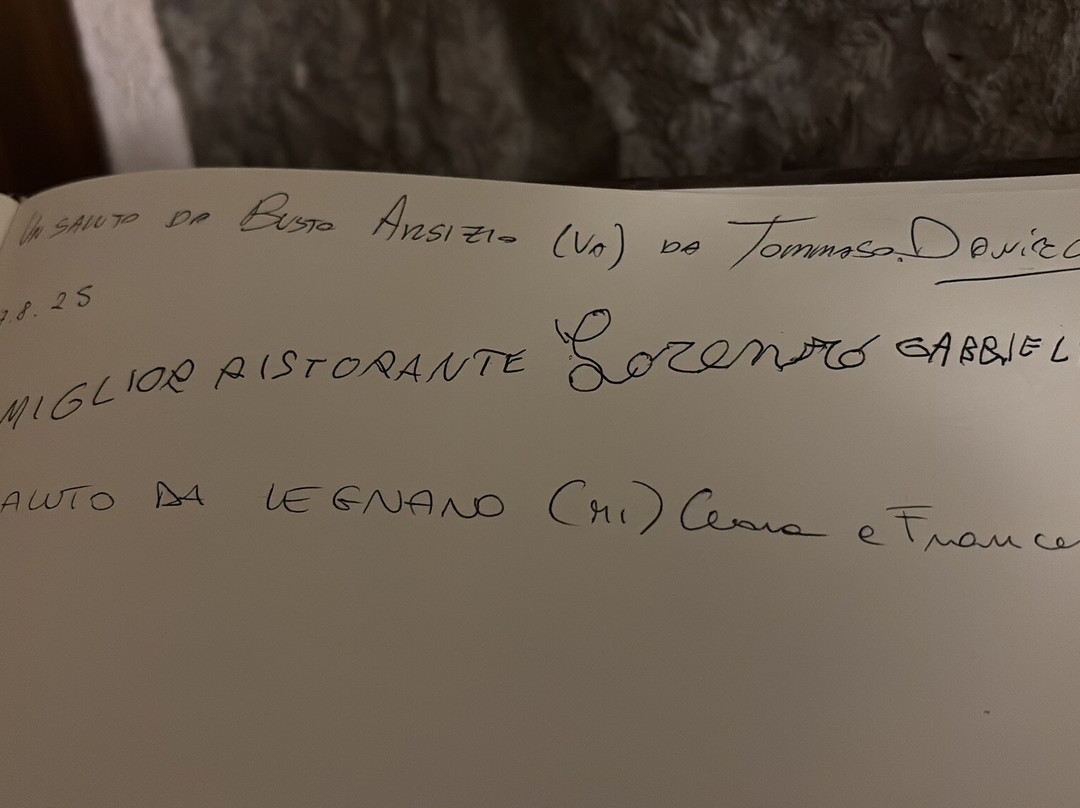 Un saluto da Busto Arsizio (Va) da Tommaso. Danie
7.8.25
MIGLIOR RISTORANTE Lorenzo GABRIEL
ALUTO DA LEGNANO (MI) e France